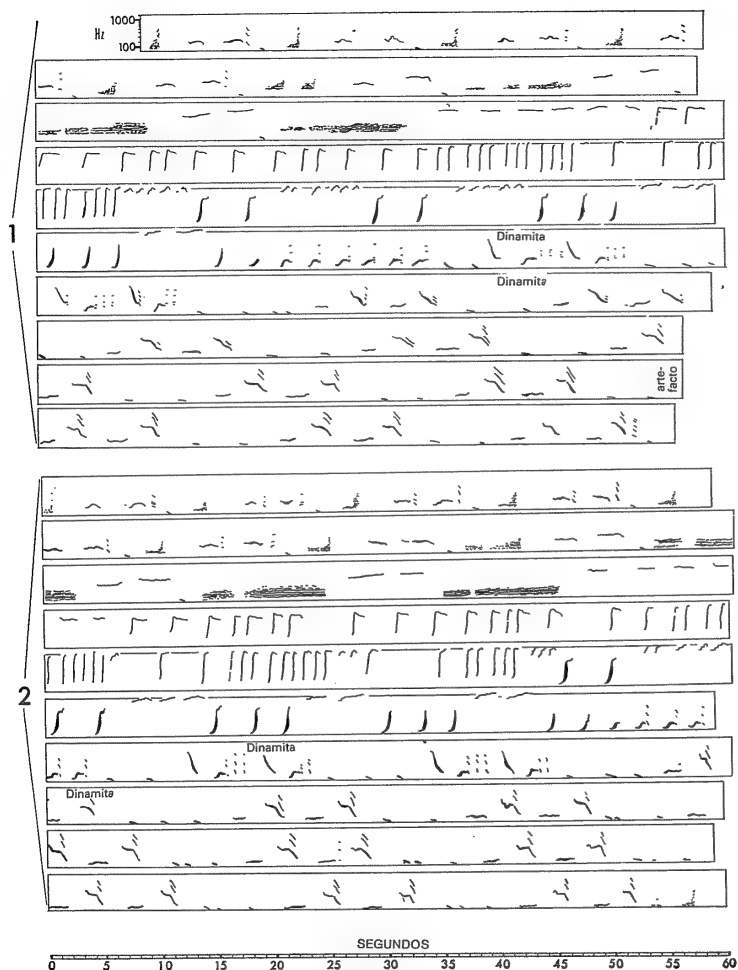 1000
Hz
100
1
Dinamita
Dinamita
arte-
facto
2
Dinamita
Dinamita
SEGUNDOS
0 5 10 15 20 25 30 35 40 45 50 55 60